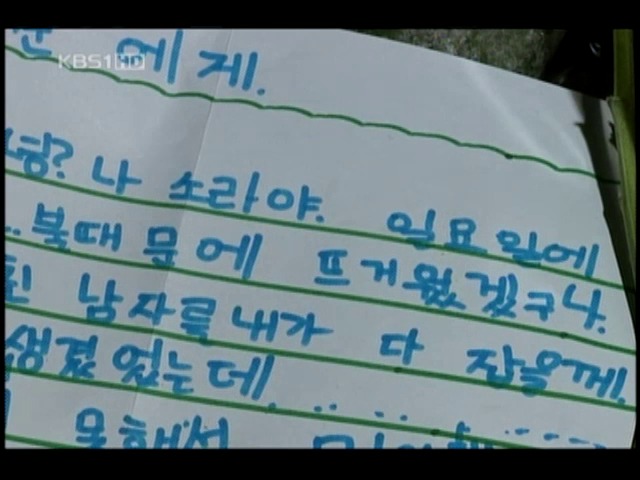 KBS1HD
에게.
나 소라야. 일요일에
..북때문에 뜨거웠겠구나.
남자를 내가 다 잡을께.
생겼었는데.......
못해서